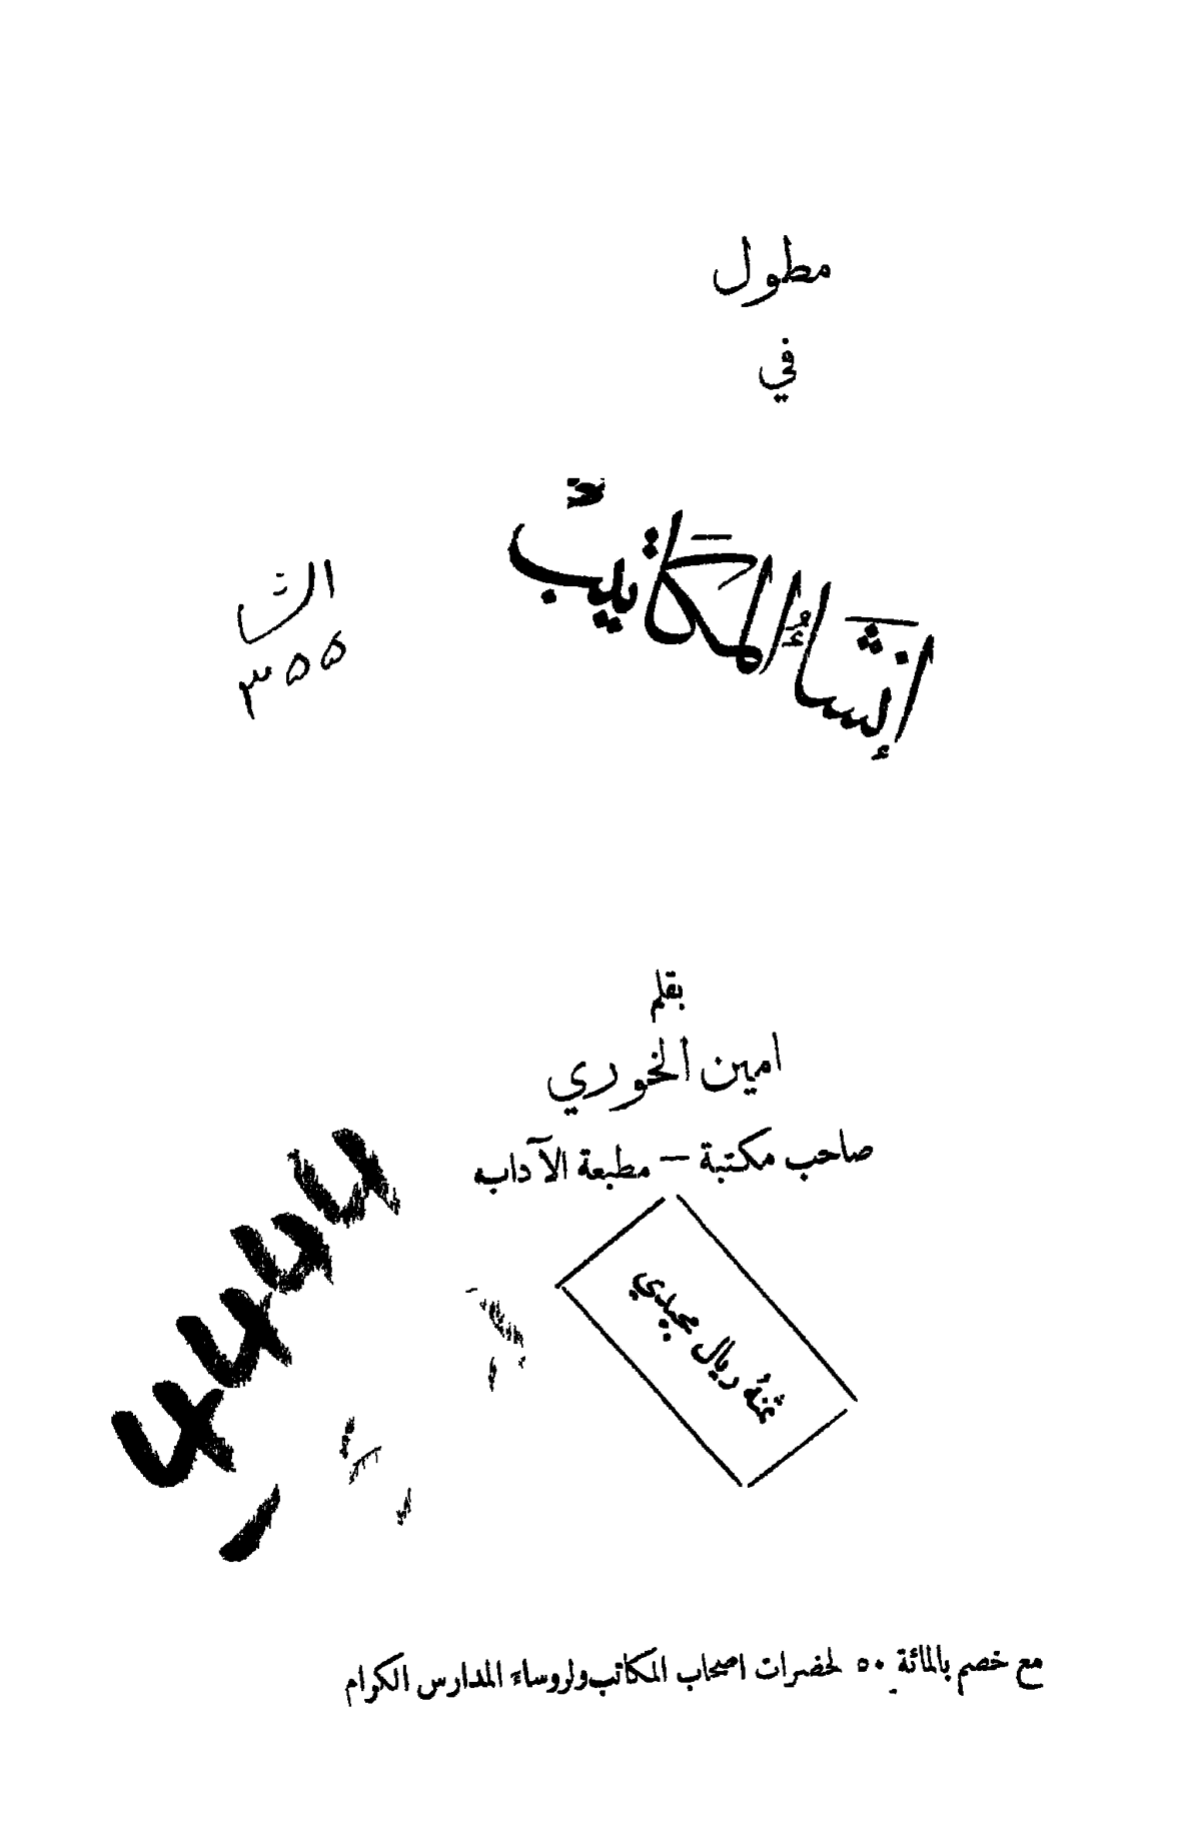 مطول
في
إنشاء المكاتيب
٣٥٥
بقلم
امين الخوري
صاحب مكتبة – مطبعة الآداب
ثمنهُ ريال مجيدي
مع خصم بالمائة ٥٠ لحضرات اصحاب المكاتب ولروساء المدارس الكرام